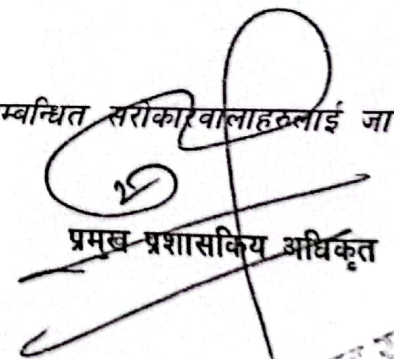 म्बन्धित सरोकारवालाहरुलाई जा
प्रमुख प्रशासकिय अधिकृत